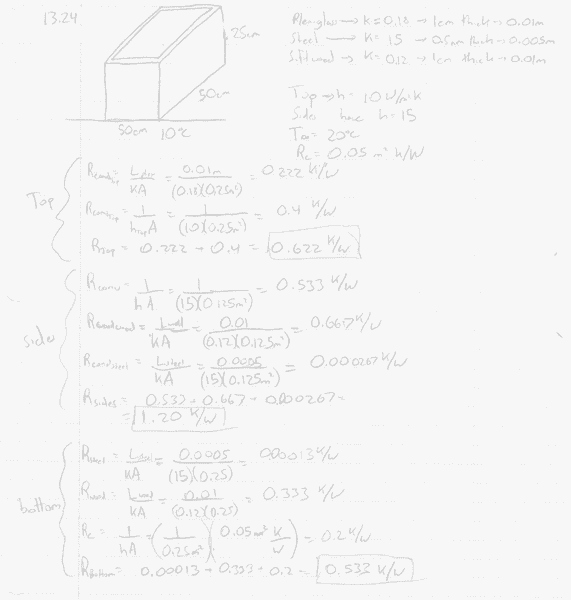 13.24
25cm
50cm
50cm 10°C
Plexiglass → k = 0.18 → 1cm thick → 0.01m
Steel → K = 15 → 0.5mm thick → 0.005m
Softwood → K = 0.12 → 1cm thick → 0.01m
Top → h = 10 W/m²K
Sides have h = 15
T∞ = 20°C
Rc = 0.05 m² K/W
Top
= 0.01m / (0.18)(0.25m²) = 0.222 K/W
= 1 / htopA = 1 / (10)(0.25m²) = 0.4 K/W
Rtop = 0.222 + 0.4 = 0.622 K/W
sides
Rconv = 1 / hA = 1 / (15)(0.125m²) = 0.533 K/W
= Lwood / kA = 0.01 / (0.12)(0.125m²) = 0.667 K/W
Rcond steel = Lsteel / kA = 0.0005 / (15)(0.125m²) = 0.000267 K/W
Rsides = 0.533 + 0.667 + 0.000267 =
= 1.20 K/W
bottom
Rsteel = Lsteel / kA = 0.0005 / (15)(0.25) = 0.00013 K/W
Rwood = Lwood / kA = 0.01 / (0.12)(0.25) = 0.333 K/W
Rc = 1 / hA = (1 / 0.25m²)(0.05m² K/W) = 0.2 K/W
RBottom = 0.00013 + 0.333 + 0.2 = 0.533 K/W